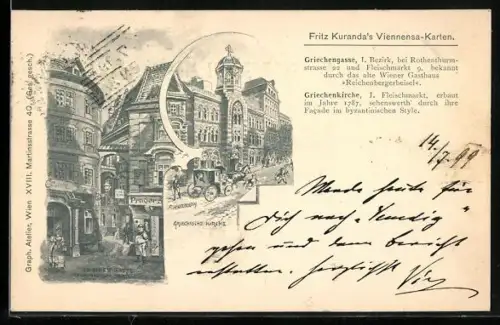 Fritz Kuranda's Viennensa-Karten.
Griechengasse, I. Bezirk, bei Rothenthurm-
strasse 22 und Fleischmarkt 9, bekannt
durch das alte Wiener Gasthaus
»Reichenbergerbeisel«.
Griechenkirche, I. Fleischmarkt, erbaut
im Jahre 1787, sehenswerth durch ihre
Façade im byzantinischen Style.
Graph. Atelier, Wien XVIII, Martinsstrasse 40. (Ges. gesch.)
Prager
GRIECHISCHE KIRCHE
14/7 99
Werde heute für
Dich nach "Venedig"
gehen und dann Bericht
erstatten. Herzlichst